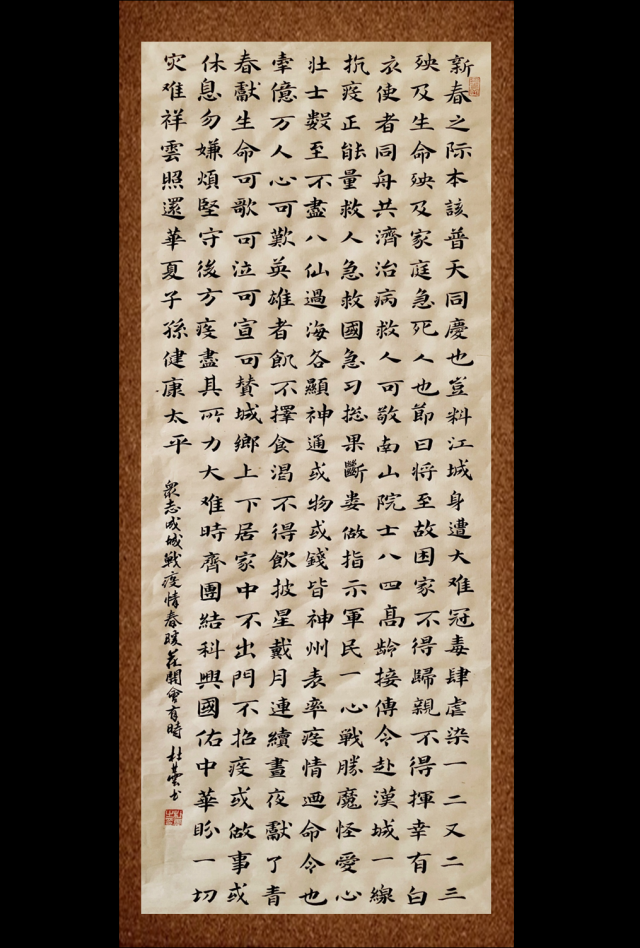 新春之际本該普天同慶也豈料江城身遭大难冠毒肆虐染一二又二三
殃及生命殃及家庭急死人也節日将至故困家不得歸親不得揮幸有白
衣使者同舟共濟治病救人可敬南山院士八四高龄接傳令赴漢城一線
抗疫正能量救人急救國急习総果斷娄做指示軍民一心戰勝魔怪愛心
壮士数至不盡八仙過海各顯神通或物或錢皆神州表率疫情命令也
牽億万人心可歎英雄者飢不擇食渴不得飲披星戴月連續晝夜獻了青
春獻生命可歌可泣可宣可賛城鄉上下居家中不出門不招疫或做事或
休息勿嫌煩堅守後方疫盡其所力大难時齊團結科興國佑中華盼一切
灾难祥雲照還華夏子孫健康太平
衆志成城戰疫情春暖花開會有時 杜雲书